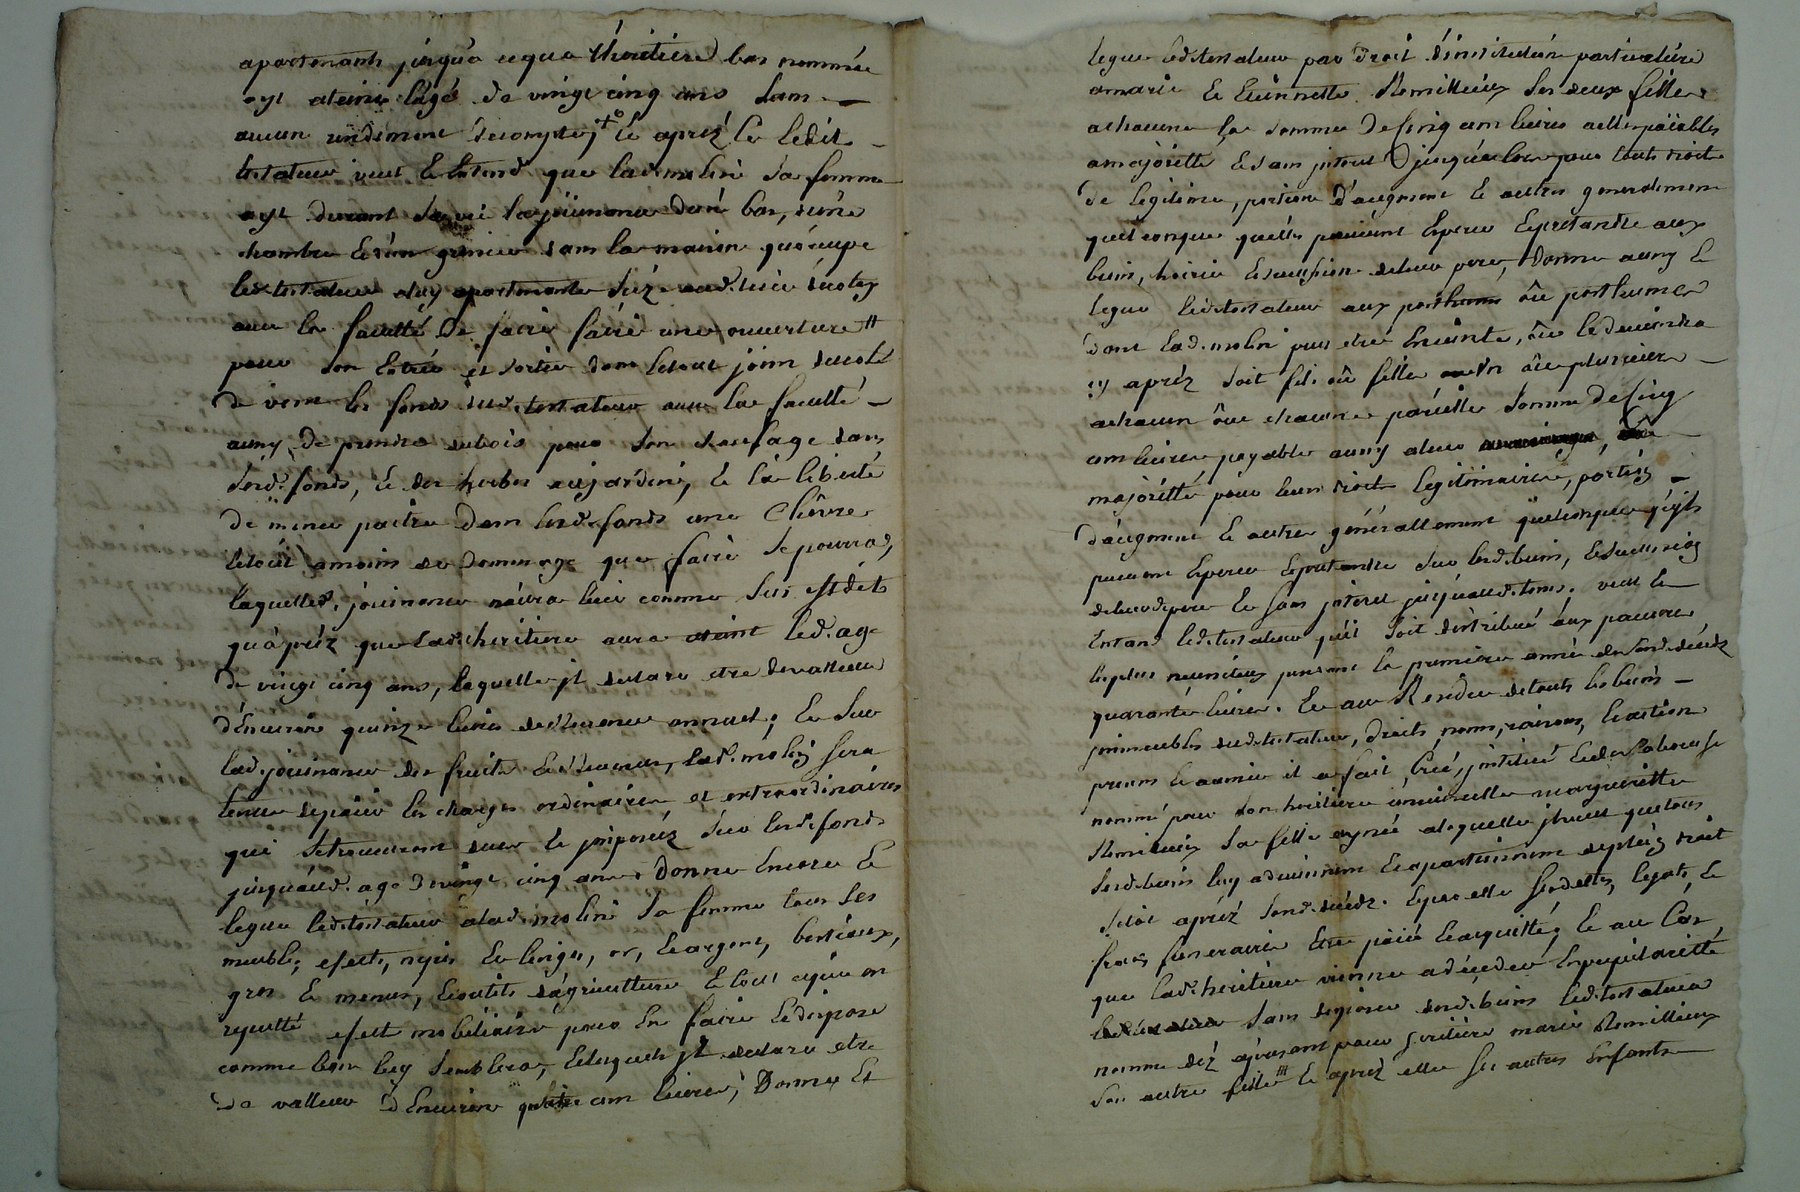 apartenants jusqu'a ceque l'heritiere bas nommée
aye ateint l'age de vingt cinq ans sans
aucun rendiment de compte, et aprez ce ledit
testateur veut et entend que lad. molin sa femme
aye durant sa vie la joüissance d'un bas, d'une
chambre et d'un grenier dans la maison qu'ocupe
led. testateur a luy apartenante
avec la faculté de faire faire une ouverture
pour son entrée et sortie dans le tout joint du coté
de vers les fonds dud. testateur avec la faculté
aussy de prendre du bois pour son chaufage dans
sesd. fonds, et des herbes au jardin, et la liberté
de mener paitre dans lesd. fonds une chèvre
le toût amoins de dommage que faire se pourra,
laquelle d. joüissance n'aura lieu comme sus est dit
qu'aprèz que lad. heritiere aura ateint led. age
de vingt cinq ans, laquelle il declare etre de valleur
d'environ quinze livres de revenu annuel; et sur
lad. joüissance des fruits et revenus, lad. molin sera
tenue de païer les charges ordinaires et extraordinaires
qui se trouveront dues et imposées sur lesd. fonds
jusqu'aud. age de vingt cinq ans. Donne encore et
legue led. testateur a lad. molin sa femme tous ses
meubles, efects, nipes et linges, or, et argent, bestiaux,
gros et menus, et outils d'agriculture et tout ce qu'on
apelle efect mobiliaire pour en faire et dispose
comme bon luy semblera, lesquels il declare etre
de valleur d'environ quatre cent livres; Donne et
legue led. testateur par droit d'institution particuliere
a marie et etiennette Remillieux ses deux filles
a chacune la somme de cinq cent livres a elles païables
a majorité et sans interet jusqu'alors pour tout droit
de legitime, portion d'augment et autres generalement
quelconque qu'elles puissent esperer et pretandre aux
biens, hoirie et succession de leur pere, Donne aussy et
legue led. testateur aux posthume oû posthumes
dont lad. molin peut etre enceinte, oû le deviendra
cy aprèz soit fils oû fille un oû plusieurs
a chacun oû chacune pareille somme de cinq
cent livres payable aussy a leur
majorité pour leurs droits legitimaires, portion
d'augment et autres généralement quelconque qu'ils
puissent esperer et pretandre sur lesd. biens, et succession
de leurd. pere et sans interet jusqu'aud. tems. veut et
entand led. testateur qu'il soit distribué aux pauvres
les plus necessiteux pendant la premiere année de son d. décèdz
quarante livres. Et au Residu de touts les biens
immeubles dud. testateur, droits, noms, raisons, et actions
presens et a venir il a fait, créé, institué et de sa bouche
nommé pour son heritiere universelle marguerite
Remillieux sa fille aynée a laquelle il veut que tous
sesd. biens luy adviennent et apartiennent de plein droit
sitôt aprèz sond. décèdz. et par elle ses dettes, legats, et
frais funeraires être païé et acquitté; et au cas
que lad. heritiere vienne a déceder en pupilarité
sans disposer desd. biens led. testateur
nomme dèz a present pour heritiere marie Remillieux
son autre fille et aprèz elle ses autres enfants